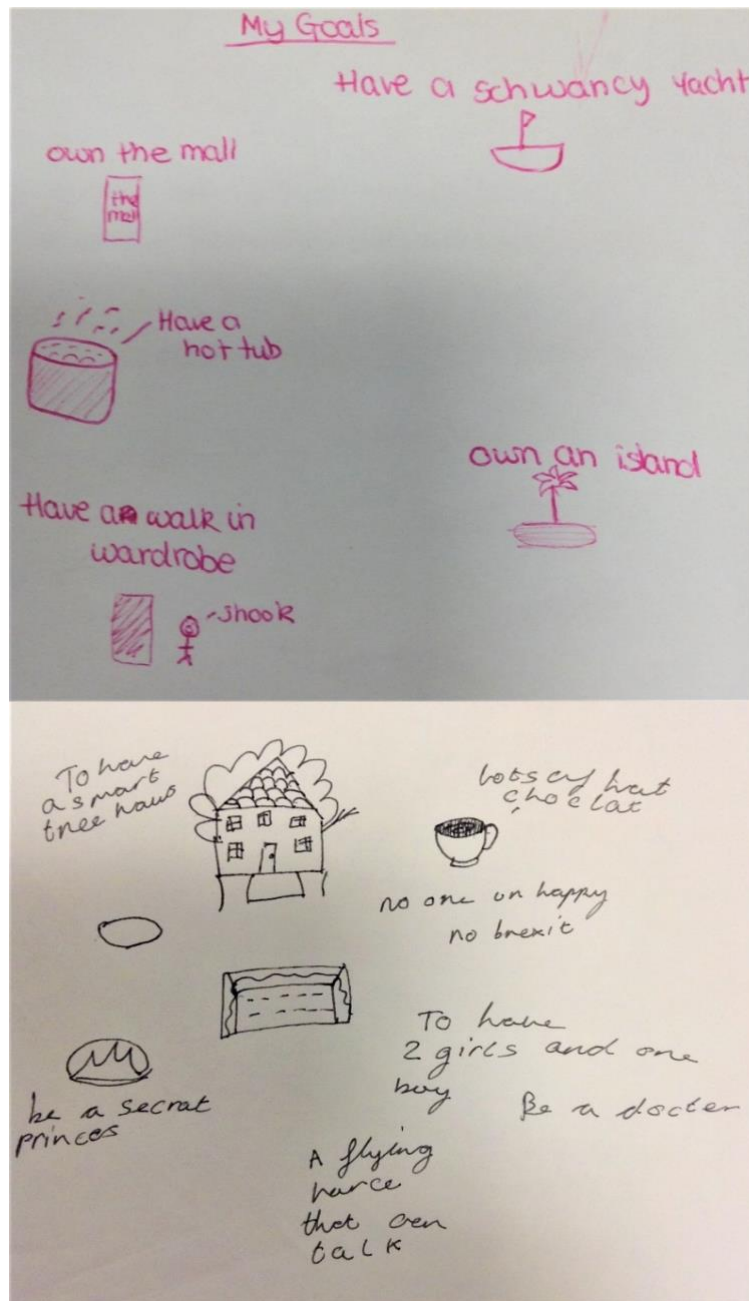 My Goals
Have a schwancy yacht
own the mall
the
mall
Have a
hot tub
own an island
Have a walk in
wardrobe
shook
To have
a smart
tree haws
lots of hut
choclat
no one un happy
no brexit
To have
2 girls and one
boy
Be a docter
be a secrat
princes
A flying
harce
that can
talk